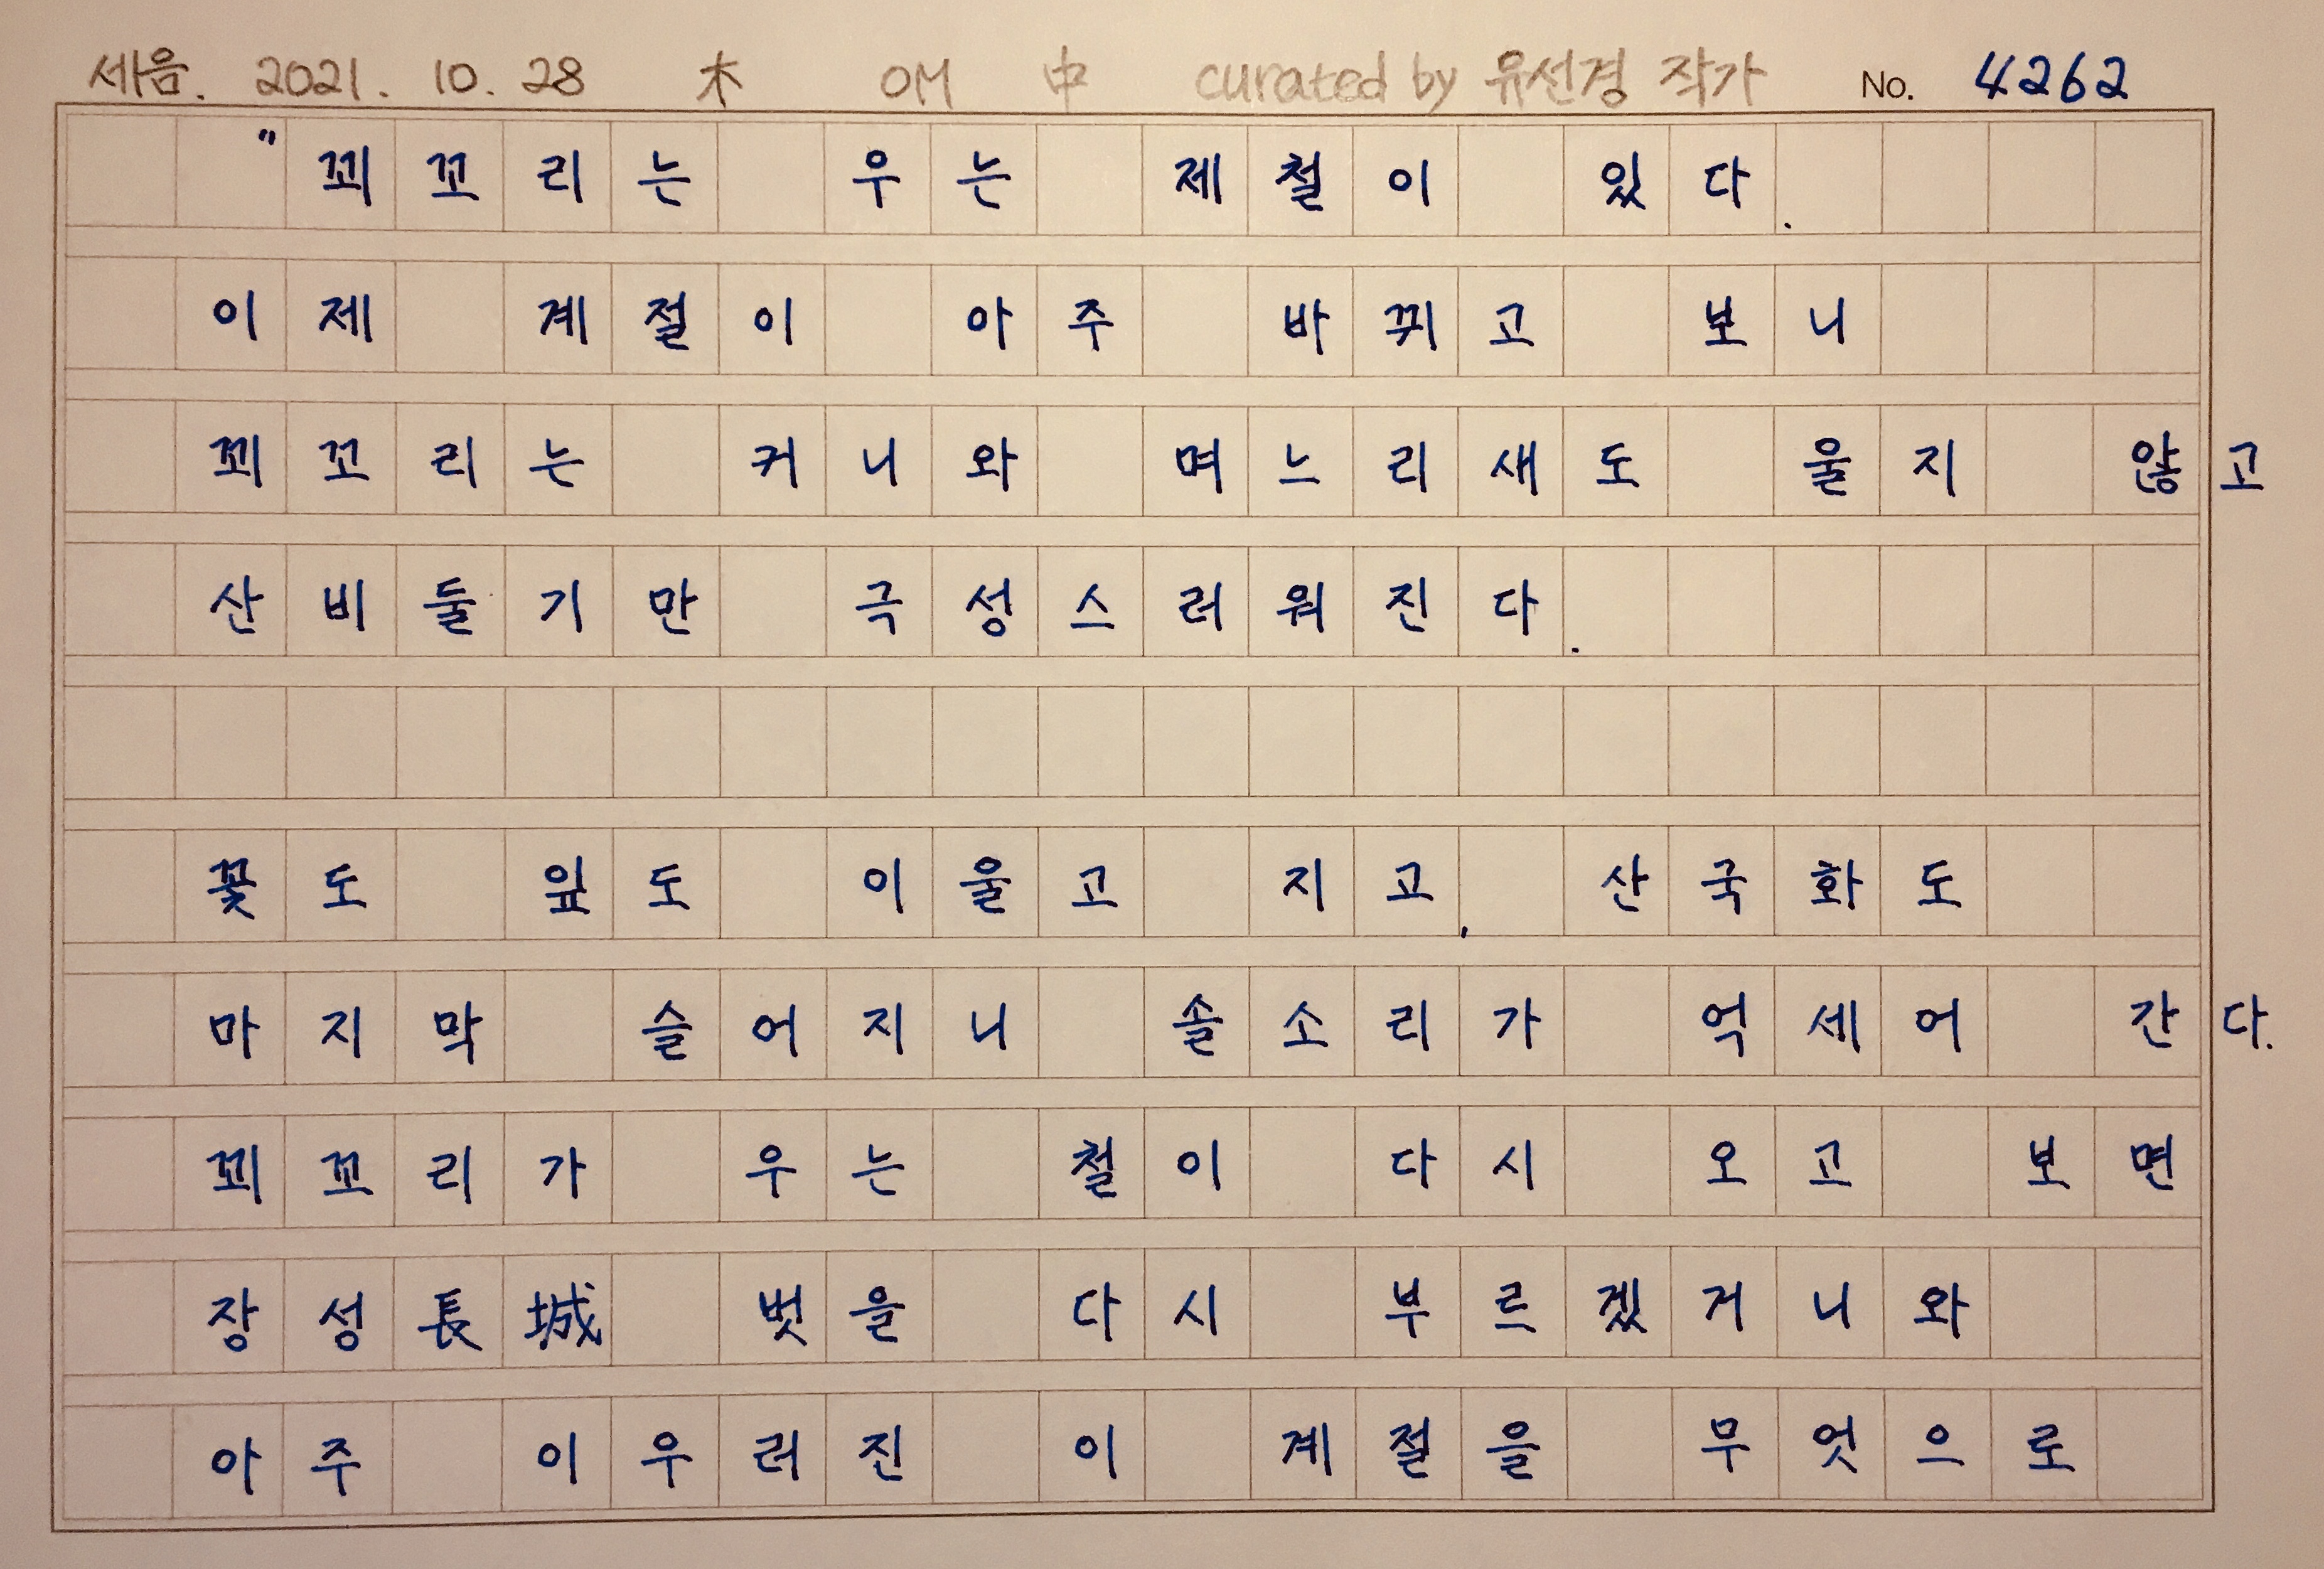 세음. 2021. 10. 28 木 OM 中 curated by 유선경 작가 No. 4262
"꾀꼬리는 우는 제철이 있다.
이제 계절이 아주 바뀌고 보니
꾀꼬리는 커니와 며느리새도 울지 않고
산비둘기만 극성스러워진다.
꽃도 잎도 이울고 지고, 산국화도
마지막 슬어지니 솔소리가 억세어 간다.
꾀꼬리가 우는 철이 다시 오고 보면
장성長城 벗을 다시 부르겠거니와
아주 이우러진 이 계절을 무엇으로